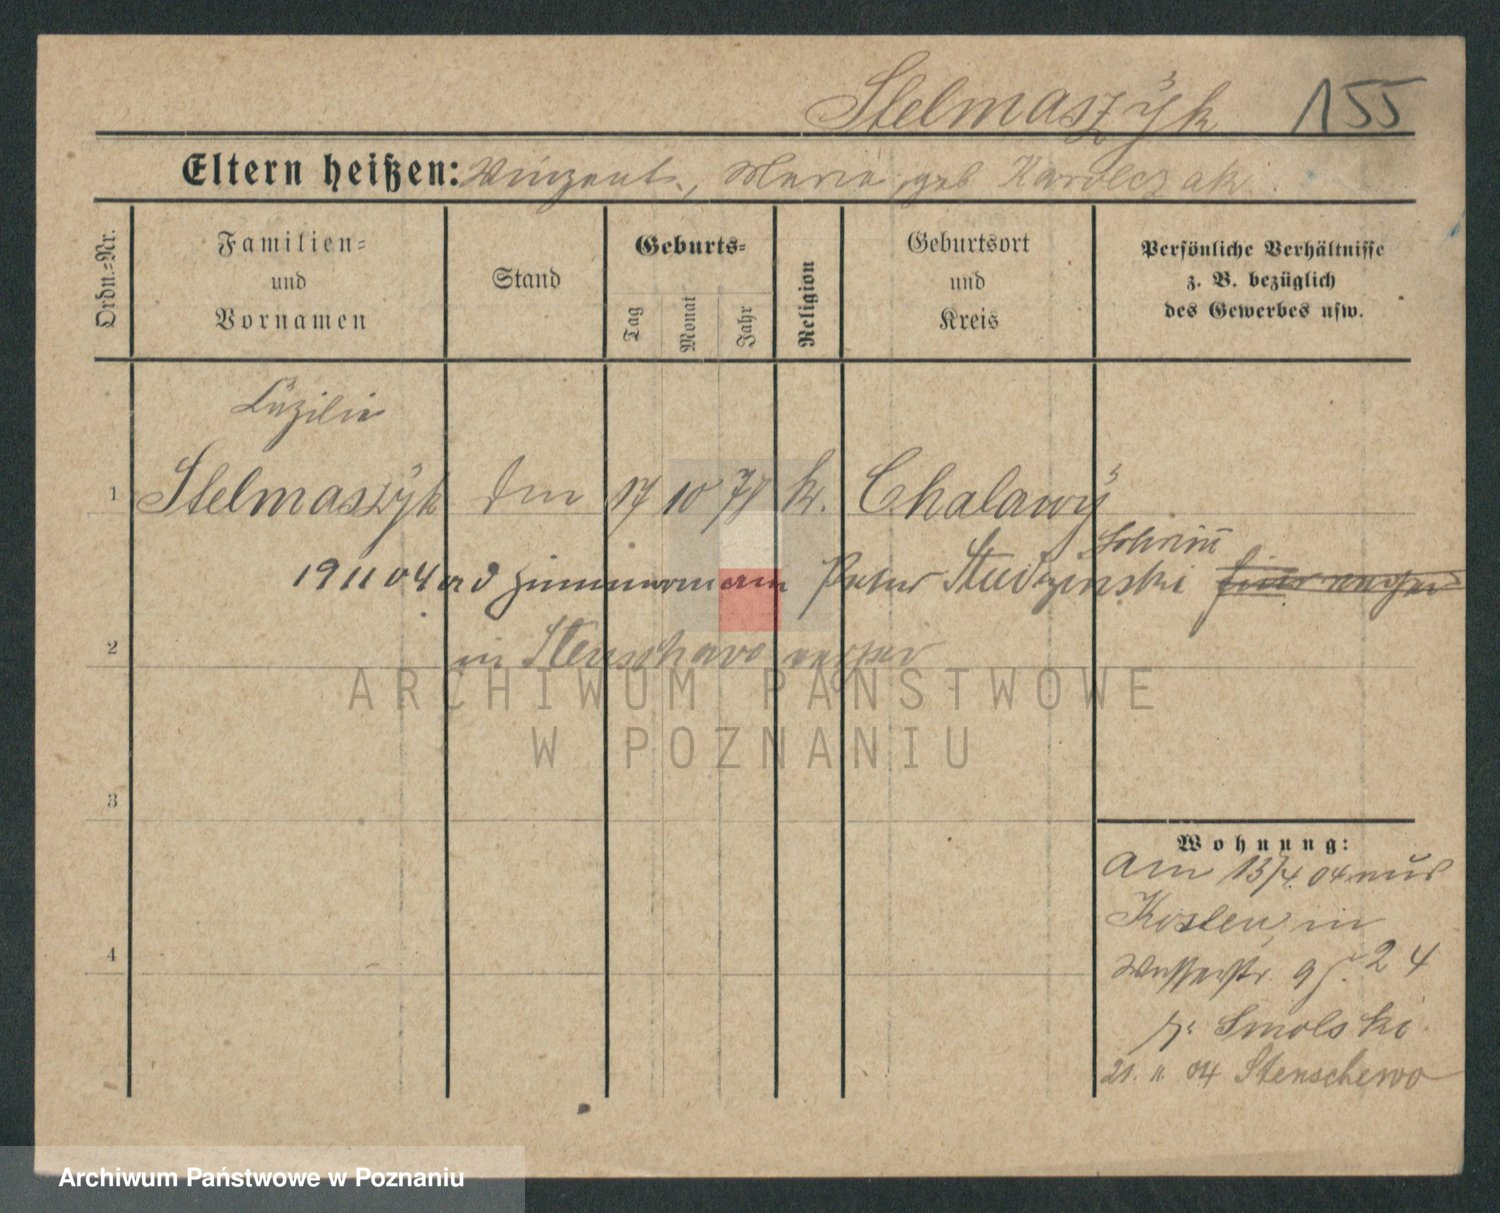 Stelmaszyk 155
Eltern heißen: Vinzent, Maria geb Karolczak
Ordn.-Nr.
Familien-
und
Vornamen
Stand
Geburts-
Tag
Monat
Jahr
Religion
Geburtsort
und
Kreis
Persönliche Verhältnisse
z. B. bezüglich
des Gewerbes usw.
Cäzilie
1 Stelmaszyk 17 10 78 k. Chalawy
Schrimm
19 11 04 Zimmermann Peter Studzinski
2 in Stenschewo
ARCHIWUM PAŃSTWOWE
W POZNANIU
3
Wohnung:
am 13/4. 04 aus
Kosten, in
4
Wasserstr. 24
Smolski
21. 11. 04 Stenschewo
Archiwum Państwowe w Poznaniu